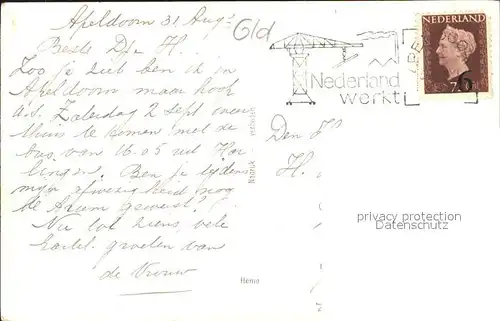 Apeldoorn 31 Aug.
Gld
Beste D. H.
Zoo je ziet ben ik in
Apeldoorn maar hoop
a.s. Zaterdag 2 sept weer
thuis te komen met de
bus van 16.05 uit Har
lingen. Ben je tijdens
mijn afwezigheid nog
te Arum geweest?
Nu tot ziens, vele
hartel. groeten van
de Vrouw
Nederland
werkt
NEDERLAND
6
Den H
H.
Nadruk verboden
Home
privacy protection
Datenschutz